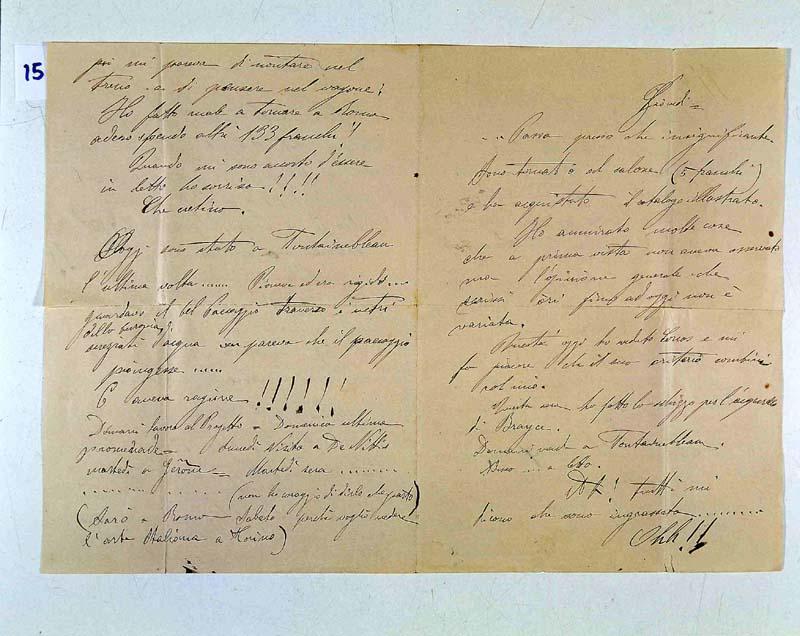 15
poi mi pareva di montare nel
treno e di pensare nel vagone!
Ho fatto male a tornare a Roma
adesso spendo altri 133 franchi!
Quando mi sono accorto d'essere
in letto ho sorriso!!!!
Che cretino.
Oggi sono stato a Fontainebleau
l'ultima volta..... Pioveva ed era rigido...
guardavo il bel Paesaggio traverso i vetri
dello
d'acqua mi pareva che il paesaggio
piangesse.....
E aveva ragione!!!!!!!
Domani lavoro al Progetto - Domenica ultima
promenade - Lunedì Visita a De Nittis
martedì a Gérôme - Martedì sera ..........
........ ..... (non ho coraggio di dirlo che parto)
(Sarò a Roma Sabato perché voglio vedere
l'arte Italiana a Torino)
Giovedì =
... Passa presso che insignificante.
Sono tornato al salone (5 franchi)
e ho acquistato il catalogo illustrato.
Ho ammirato molte cose
che a prima vista non aveva osservato
ma l'opinione generale che
scrissi fino ad oggi non è
variata.
oggi ho veduto e mi
fa piacere che il suo criterio combini
col mio.
Questa sera ho fatto lo schizzo per l'acquaforte
di
Domani vado a Fontainebleau.
Ah! tutti mi
dicono che sono ingrassato ..........
Ohh!!